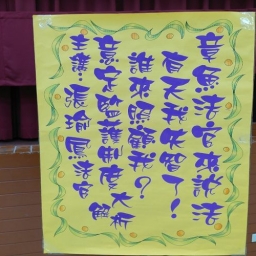 章魚法官來說法
有天我失智了！
誰來照顧我？
意定監護制度大解析
主講：張瑜鳳法官